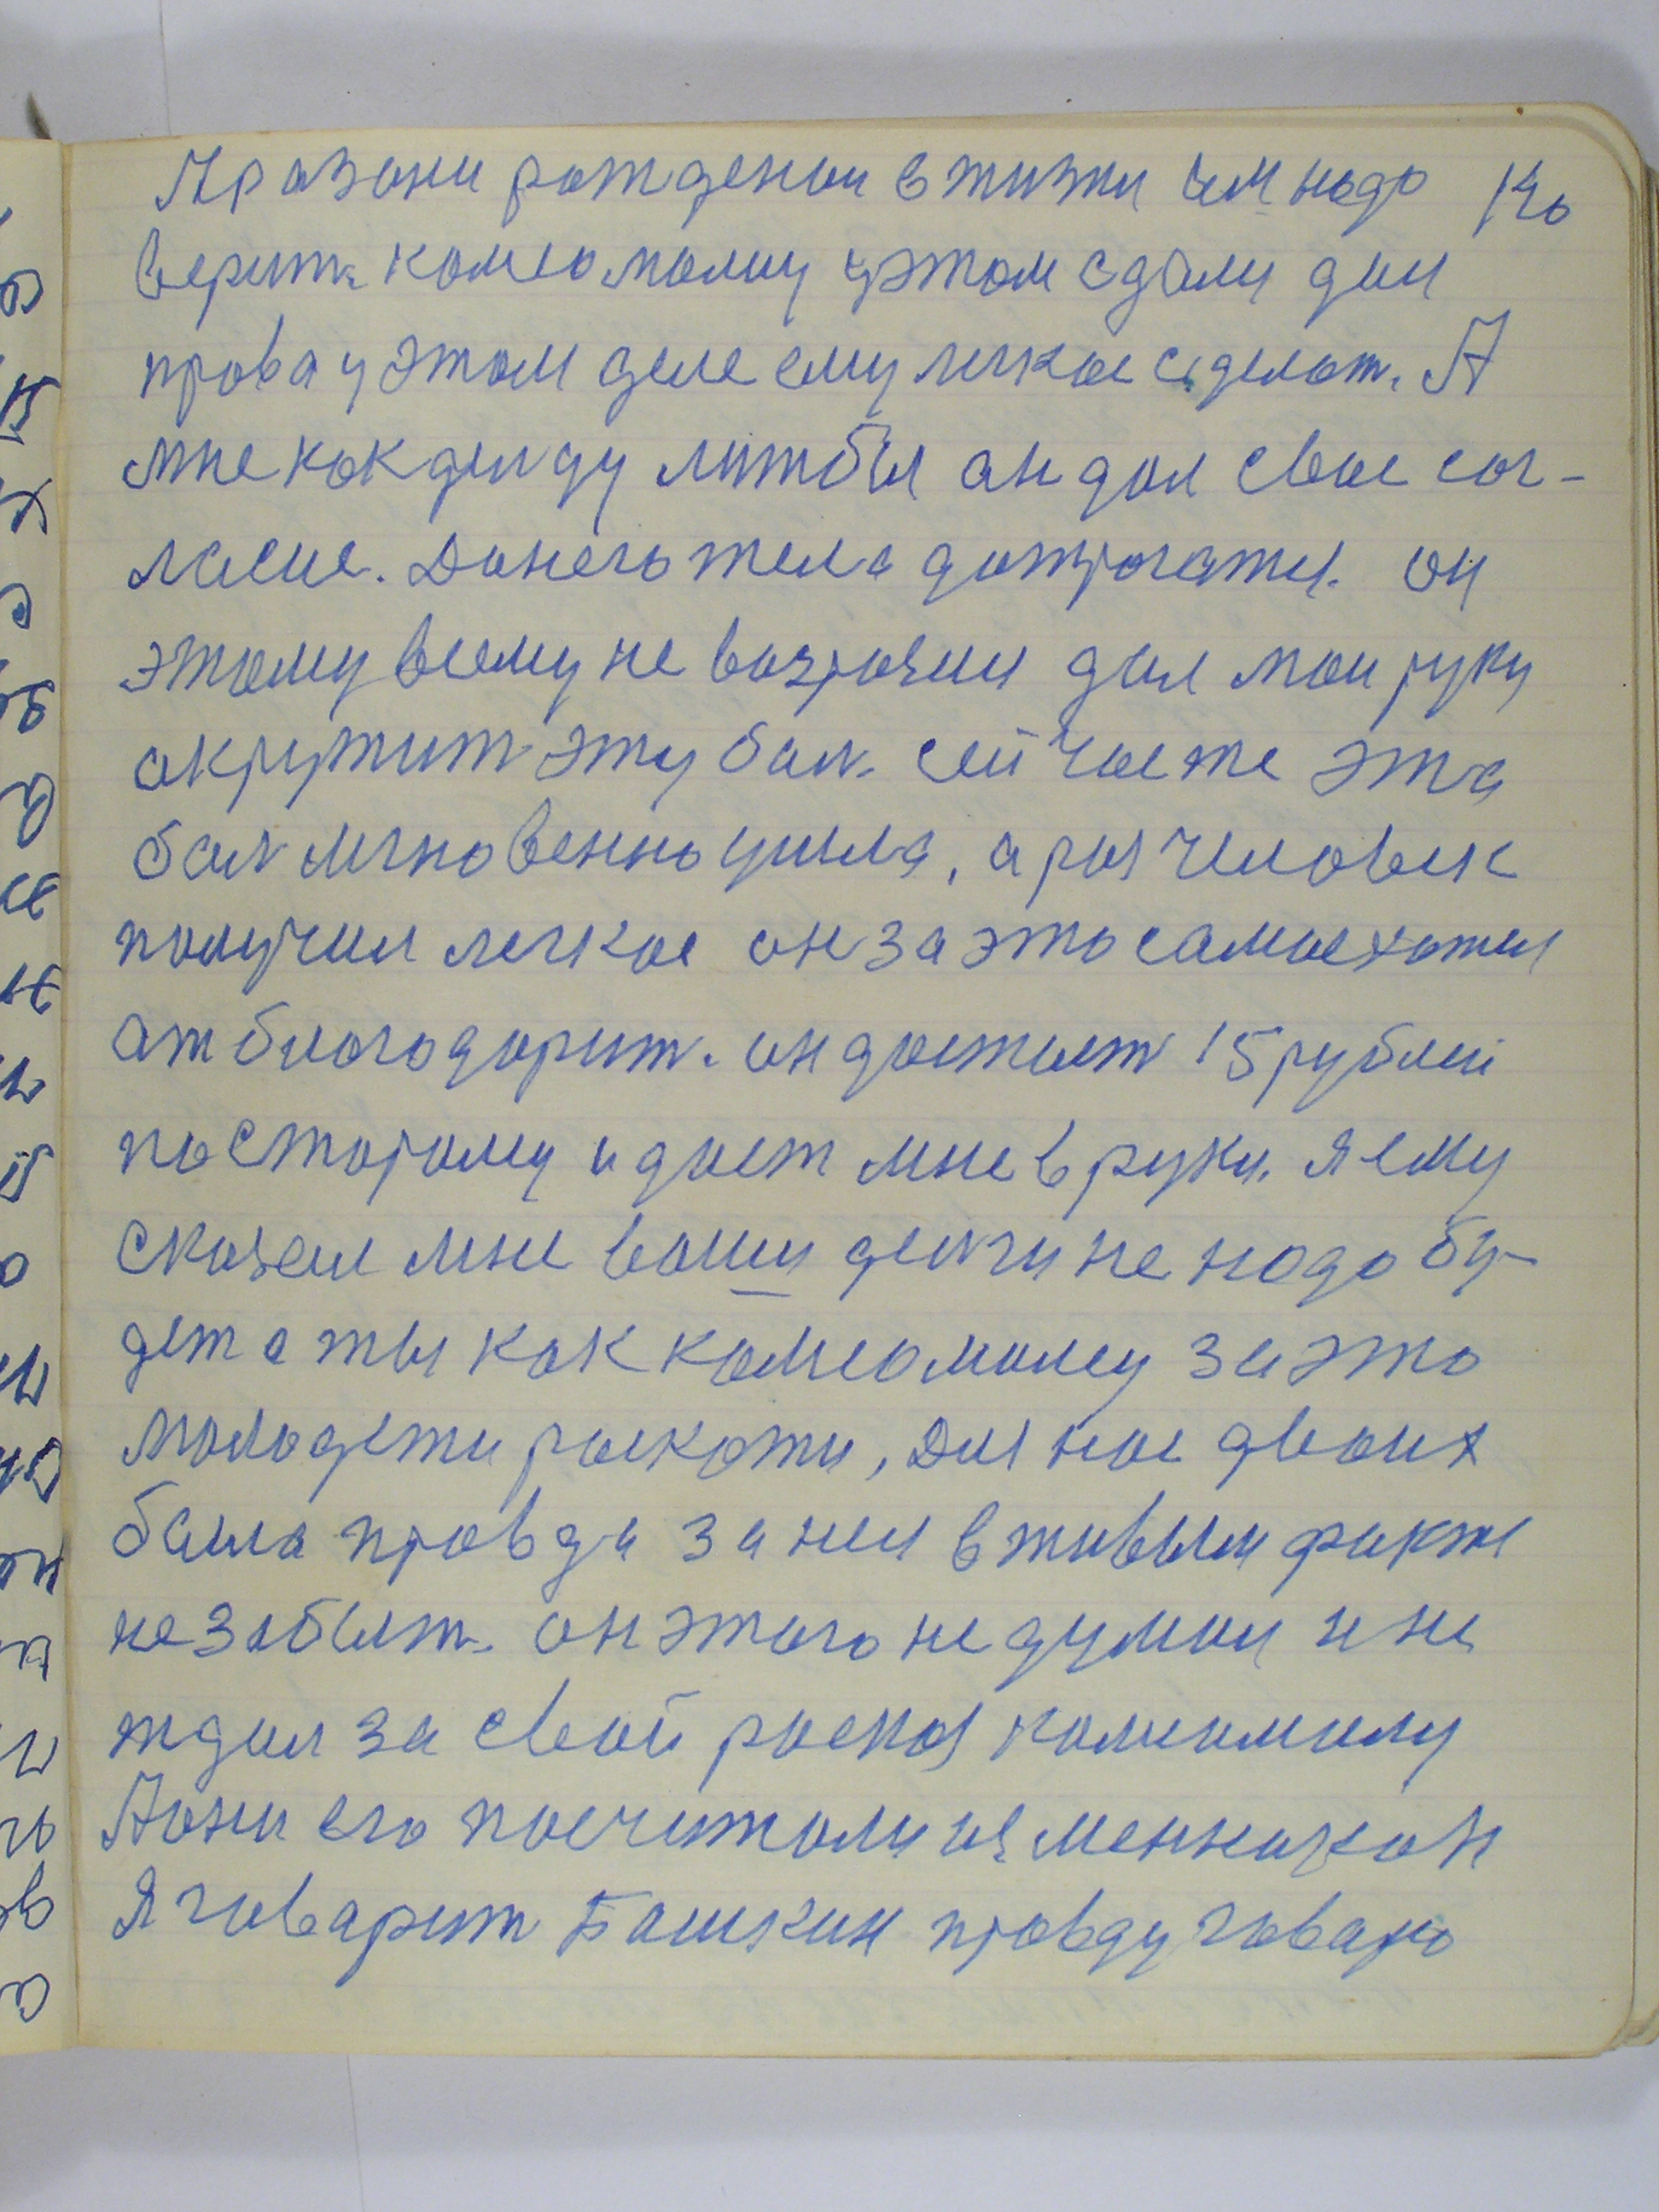 А раз они рождении в жизни им надо
верить комсомолцу у этом сдали дал
права у этом деле ему легкое сделат. А
мне как деиду лишбы ан дал свае саг-
ласие. Да него тела дотрогатця. он
этому всему не возразил дал маи руку
окружит эту бал. сейчас же эта
бал мгновенно ушла, а раз человек
получил легкое он за это самое хотел
атблогодорит. он достает 15 рублей
по старому и дает мне в руки. я ему
сказал мне ваши денги не надо бу-
дет а ты как комсомолец за это
молодежи раскажи, Для нас двоих
была правда за ней в живым факте
не забыт. он этого не думал и не
ждал за свой расказ комсомолу
А они его посчитали изменником
Я говарит Башкин правду говарю